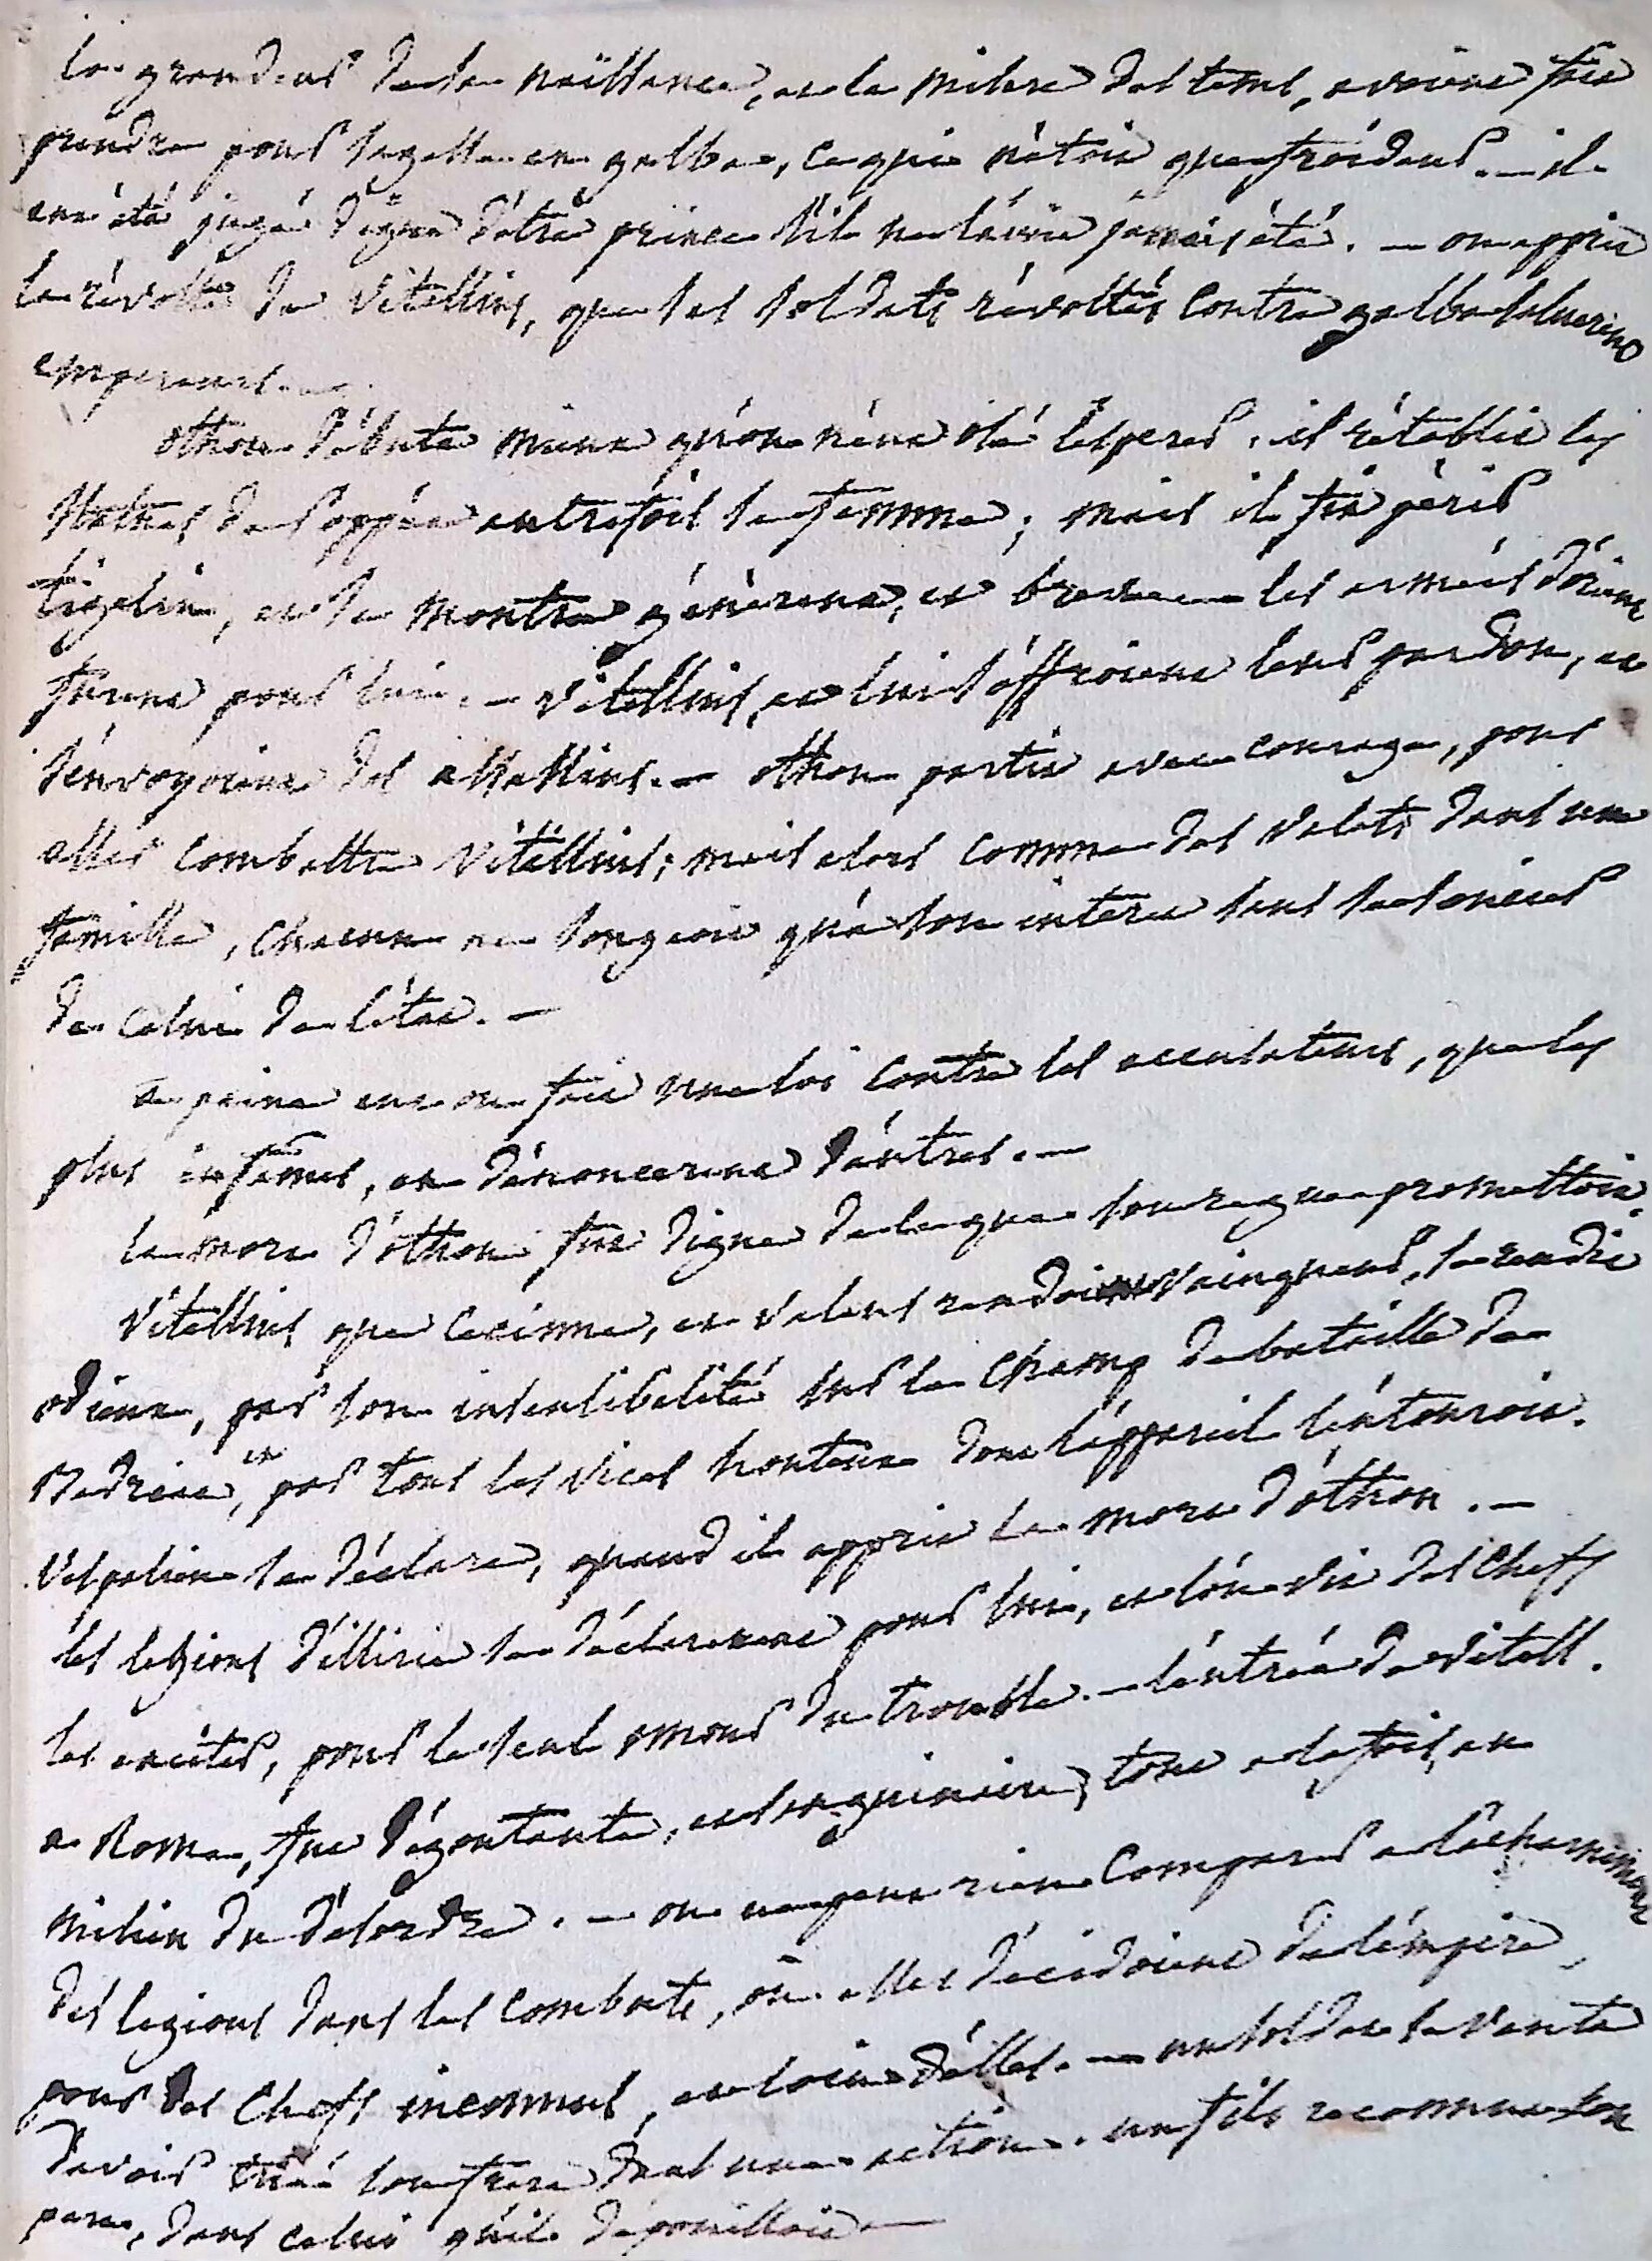 la grandeur de la naissance, et la misere des tems, avoient fait
prendre pour sagesse en galba, ce qui n'étoit que froideur. — il
eut été jugé digne d'être prince s'il ne l'avoit jamais été. — on apprit
la révolte de Vitellius, que ses soldats révoltés contre galba saluerent
empereur. —
othon débuta mieux qu'on n'eut osé l'espérer. il rétablit les
statues de Poppée autrefois sa femme; mais il fit périr
tigelin, et se montra généreux, et brave les armées d'orient
furent pour lui. — Vitellius, et lui s'offroient leur pardon, et
s'envoyoient des assassins. — othon partit avec courage, pour
aller combattre Vitellius; mais alors comme des valets dans une
famille, chacun ne songeoit qu'a son interet sans se soucier
de celui de l'état. —
a peine eut on fait une loi contre les accusateurs, que les
plus infames, en dénoncerent d'autres. —
la mort d'othon fut digne de ce que son regne promettoit.
Vitellius que Cecinna, et Valens rendoient vainqueur, se rendit
odieux, par son insensibilité sur le champ de bataille de
Bedriac, et par tous les vices honteux dont l'appareil l'entouroit.
Vespasien se déclara, quand il apprit la mort d'othon. —
les legions d'illirie se déclarerent pour lui, et l'on vit des chefs
les exciter, pour le seul amour du trouble. — l'entrée de Vitell.
a Rome, fut dégoutante, et sanguinaire, tout a la fois, au
milieu du désordre. — on ne peut rien comparer a l'acharnement
des legions dans les combats, où elles décidoient de l'empire,
pour des chefs inconnus, et loin d'elles. — un soldat se vanta
d'avoir tué son frere dans une action. un fils reconnut son
pere, dans celui qu'il dépouilloit —